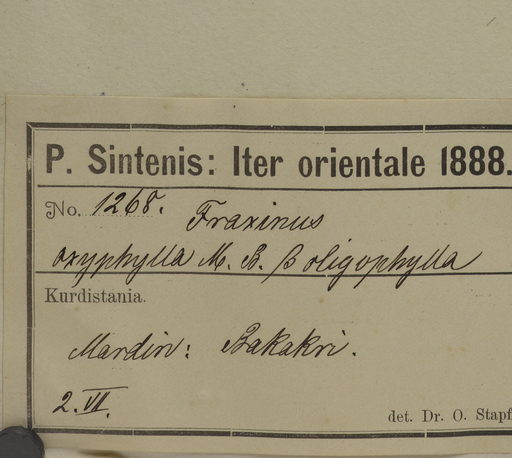 P. Sintenis: Iter orientale 1888.
No. 1268. Fraxinus
oxyphylla M. B. β oligophylla
Kurdistania.
Mardin: Bakakri.
2. VI.
det. Dr. O. Stapf